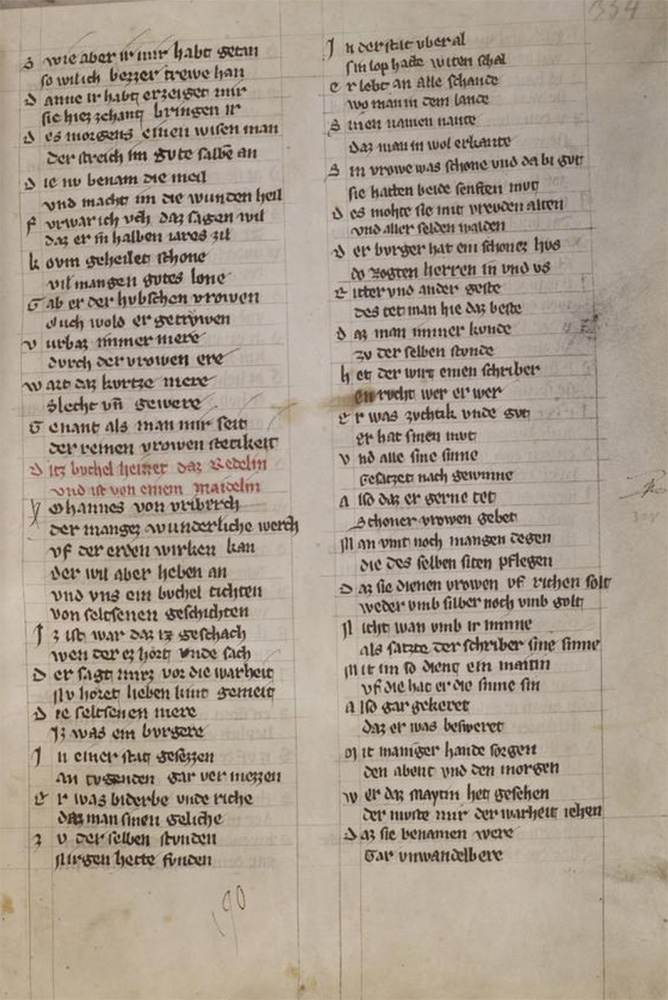 354
S wie aber ir mir habt getan
so wil ich bezzer trewe han
D anne ir habt erzeiget mir
sie hiez zehant bringen ir
D es morgens einen wisen man
der streich im gute salbē an
D ie nv benam die meil
vnd macht im die wunden heil
F vrwar ich vch daz sagen wil
daz er in halben iares zil
K ovm geheilet schone
vil mangen gutes lone
G ab er der hvbschen vrowen
ouch wold er getrywen
V urbaz immer mere
durch der vrowen ere
W art daz kvrtze mere
Slecht vn̄ gewere
G enant als man mir seit
der reinen vrowen stetikeit
D itz buchel heizet daz Redelin
vnd ist von einem Maidelin
Johannes von vriberch
der mangez wunderliche werch
vf der erden wirken kan
der wil aber heben an
vnd vns ein buchel tichten
von seltsenen geschichten
I z ist war daz iz geschach
wen der ez hort vnde sach
D er sagt mirz vor die warheit
Nv horet lieben kint gemeit
D ie seltsenen mere
Iz was ein burgere
I n einer stat gesezzen
an tugenden gar vermezzen
E r was biderbe vnde riche
daz man sinen geliche
Z v der selben stvnden
Nirgen hette funden
190
I n der stat vberal
sin lop hatte witen schal
E r lebt an alle schande
wo man in dem lande
S inen namen nante
daz man in wol erkante
S in vrowe was schone vnd da bi gvt
sie hatten beide senften mvt
D es mohte sie mit vreuden alten
vnd aller selden walden
D er burger hat ein schonez hvs
do zogten herren in vnd vs
R itter vnd ander geste
des tet man hie daz beste
D az man immer kunde
zv der selben stvnde
H et der wirt einen schriber
en rvcht wer er wer
E r was zvchtik vnde gvt
er hat sinen mvt
V nd alle sine sinne
Gesatzet nach gewinne
A lso daz er gerne tet
Schoner vrowen gebet
M an vint noch mangen degen
die des selben siten pflegen
D az sie dienen vrowen vf richen solt
weder vmb silber noch vmb golt
N icht wan vmb ir minne
als satzte der schriber sine sinne
M it im so dient ein maitin
vf die hat er die sinne sin
A lso gar gekeret
daz er was besweret
M it maniger hande sorgen
den abent vnd den morgen
W er daz maytin het gesehen
der mvste mir der warheit iehen
D az sie benamen were
Gar vnwandelbere